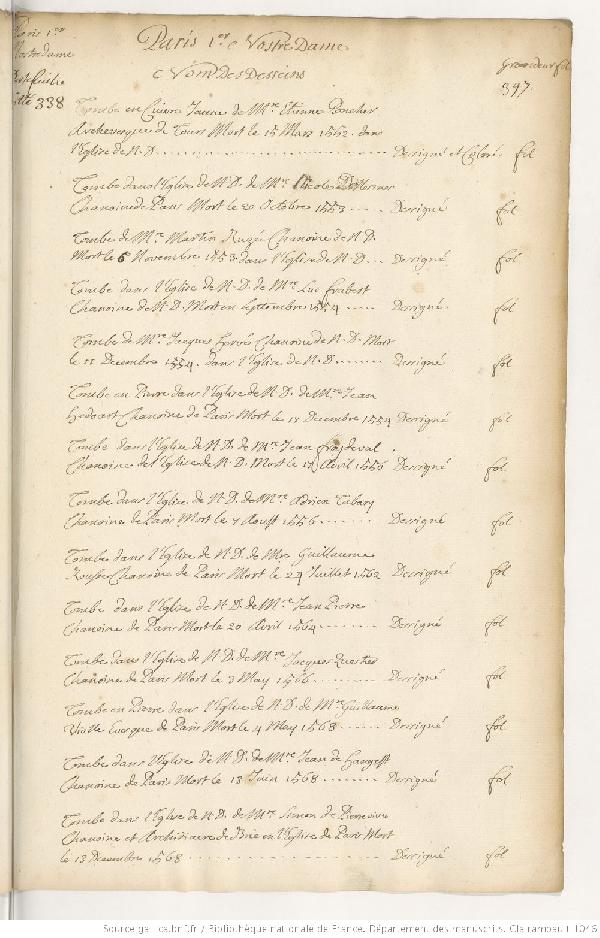 Paris 1.er
Nostre dame
338
Paris 1.er Nostre Dame
Nom Des Desseins
Grandeur fol
397
Tombe en Cuivre Jaune de M.re Etienne Poncher
Archevesque de Tours Mort le 15 Mars 1552. dans
l'Eglise de N.D. Dessigné et Coloré. fol
Tombe dans l'Eglise de N.D. de M.re Nicolas
Chanoine de Paris Mort le 20 Octobre 1553 Dessigné fol
Tombe de M.re Martin Ruzé Chanoine de N.D.
Mort le 6 Novembre 1553 dans l'Eglise de N.D. Dessigné fol
Tombe dans l'Eglise de N.D. de M.re Luc
Chanoine de N.D. Mort en Septembre 1554 Dessigné fol
Tombe de M.re Jacques Chanoine de N.D. Mort
le 11 Decembre 1554. dans l'Eglise de N.D. Dessigné fol
Tombe en Pierre dans l'Eglise de N.D. de M.re Jean
Chanoine de Paris Mort le Decembre 1554 Dessigné fol
Tombe dans l'Eglise de N.D. de M.re Jean
Chanoine de l'Eglise de N.D. Mort le 17 Avril 1556 Dessigné fol
Tombe dans l'Eglise de N.D. de M.re Adrien
Chanoine de Paris Mort le 7 Aoust 1556 Dessigné fol
Tombe dans l'Eglise de N.D. de M.re Guillaume
Chanoine de Paris Mort le 29 Juillet 1562 Dessigné fol
Tombe dans l'Eglise de N.D. de M.re Jean Pierre
Chanoine de Paris Mort le 20 Avril 1564 Dessigné fol
Tombe dans l'Eglise de N.D. de M.re Jacques
Chanoine de Paris Mort le 3 May 1566 Dessigné fol
Tombe en Pierre dans l'Eglise de N.D. de M.re Guillaume
Viole Evesque de Paris Mort le 4 May 1568 Dessigné fol
Tombe dans l'Eglise de N.D. de M.re Jean de Hangest
Chanoine de Paris Mort le 13 Juin 1568 Dessigné fol
Tombe dans l'Eglise de N.D. de M.re Simon de
Chanoine et Archidiacre de Brie en l'Eglise de Paris Mort
le 13 Decembre 1568 Dessigné fol
Source gallica.bnf.fr / Bibliothèque nationale de France. Département des manuscrits. Clairambault 1046